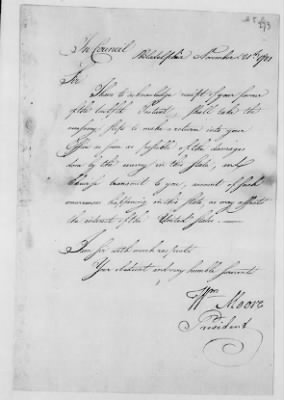 273
In Council Philadelphia November 21st 1781
Sir
I have to acknowledge receipt of your favour
of the twelfth Instant, shall take the
necessary steps to make a return into your
Office as soon as possible of the damages
done by the enemy in this State, and
likewise transmit to you, account of such
occurrences happening in this State, as may affect
the interest of the United States.
I am Sir with much respect
Your obedient and very humble Servant
Wm Moore
President